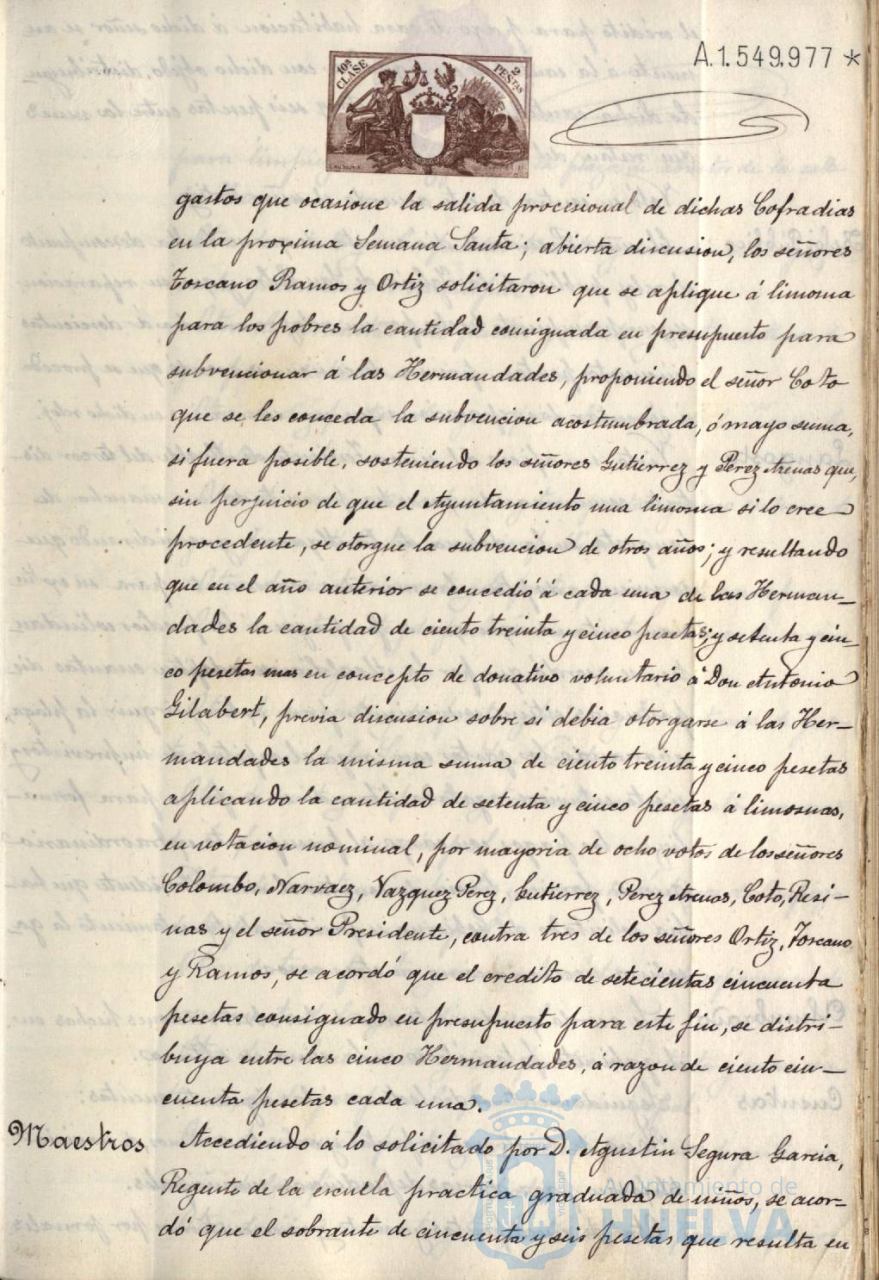 A.1.549.977 *
10ª CLASE
2 PESETAS
gastos que ocasione la salida procesional de dichas Cofradias
en la proxima Semana Santa; abierta discusion, los señores
Toscano Ramos y Ortiz solicitaron que se aplique á limosna
para los pobres la cantidad consignada en presupuesto para
subvencionar á las Hermandades, proponiendo el señor Coto
que se les conceda la subvencion acostumbrada, ó mayo suma,
si fuera posible, sosteniendo los señores Gutiérrez y Perez Arenas que,
sin perjuicio de que el Ayuntamiento una limosna si lo cree
procedente, se otorgue la subvencion de otros años; y resultando
que en el año anterior se concedió á cada una de las Herman-
dades la cantidad de ciento treinta y cinco pesetas; y setenta y cin-
co pesetas mas en concepto de donativo voluntario á Don Antonio
Gilabert, previa discusion sobre si debia otorgarse á las Her-
mandades la misma suma de ciento treinta y cinco pesetas
aplicando la cantidad de setenta y cinco pesetas á limosnas,
en votacion nominal, por mayoria de ocho votos de los señores
Colombo, Narvaez, Vazquez Perez, Gutierrez, Perez Arenas, Coto, Resi-
nas y el señor Presidente, contra tres de los señores Ortiz, Toscano
y Ramos, se acordó que el credito de setecientas cincuenta
pesetas consignado en presupuesto para este fin, se distri-
buya entre las cinco Hermandades, á razon de ciento cin-
cuenta pesetas cada una.
Maestros Accediendo á lo solicitado por D. Agustin Segura Garcia,
Regente de la escuela practica graduada de niños, se acor-
dó que el sobrante de cincuenta y seis pesetas que resulta en
Ayuntamiento de
HUELVA